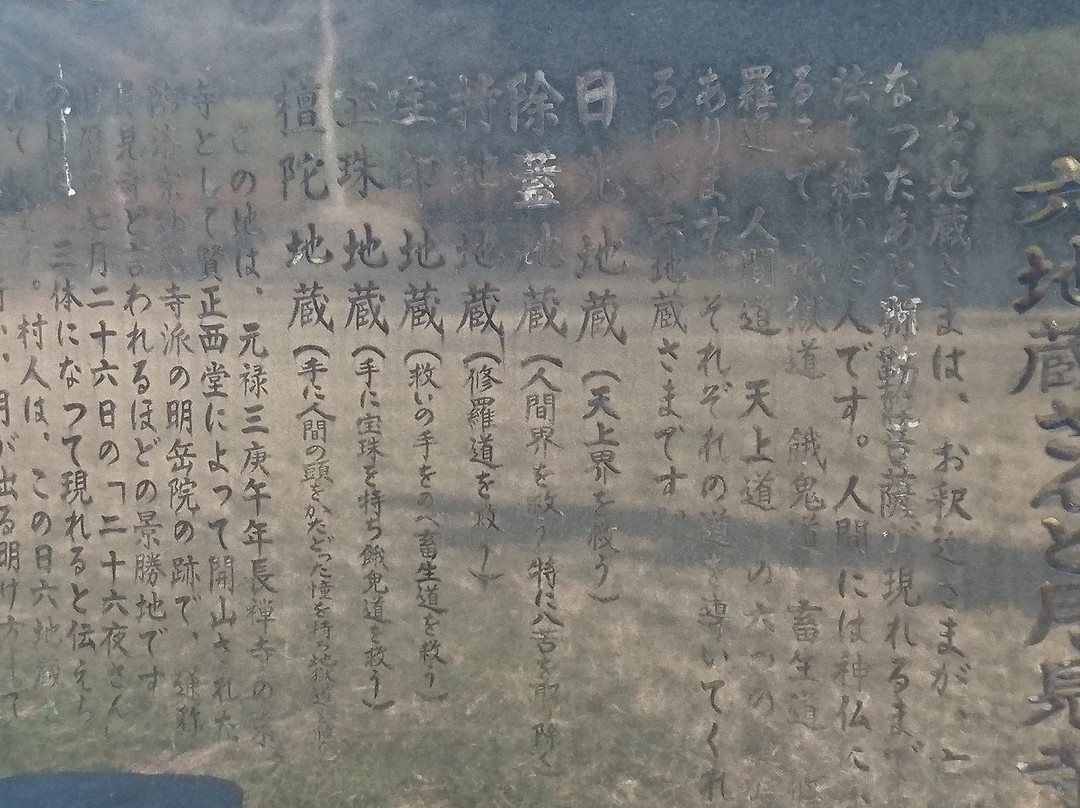 六地蔵さんと月見寺
お地蔵さまは、お釈迦さまが、亡
なつたあと弥勒菩薩が現れるまで
法を継いだ人です。人間には神仏に
るまで 地獄道 餓鬼道 畜生道 修
羅道 人間道 天上道 の六つの
あります。それぞれの道を導いてくれ
るのが六地蔵さまです。
日光地蔵(天上界を救う)
除蓋地蔵(人間界を救う特に八苦を取り除く
持地地蔵(修羅道を救う)
宝印地蔵(救いの手をのべ畜生道を救う)
宝珠地蔵(手に宝珠を持ち餓鬼道を救う)
檀陀地蔵(手に人間の頭をかたどった幢を持ち
この地は、元禄三庚午年長禅寺の末
寺として賢正西堂によって開山された
臨済宗 寺派の明岳院の跡で、通称
月見寺と言われるほどの景勝地です
旧暦 七月二十六日の「二十六夜さん
三体になつて現れると伝えら
村人は、この日六地蔵
月が出る明け方